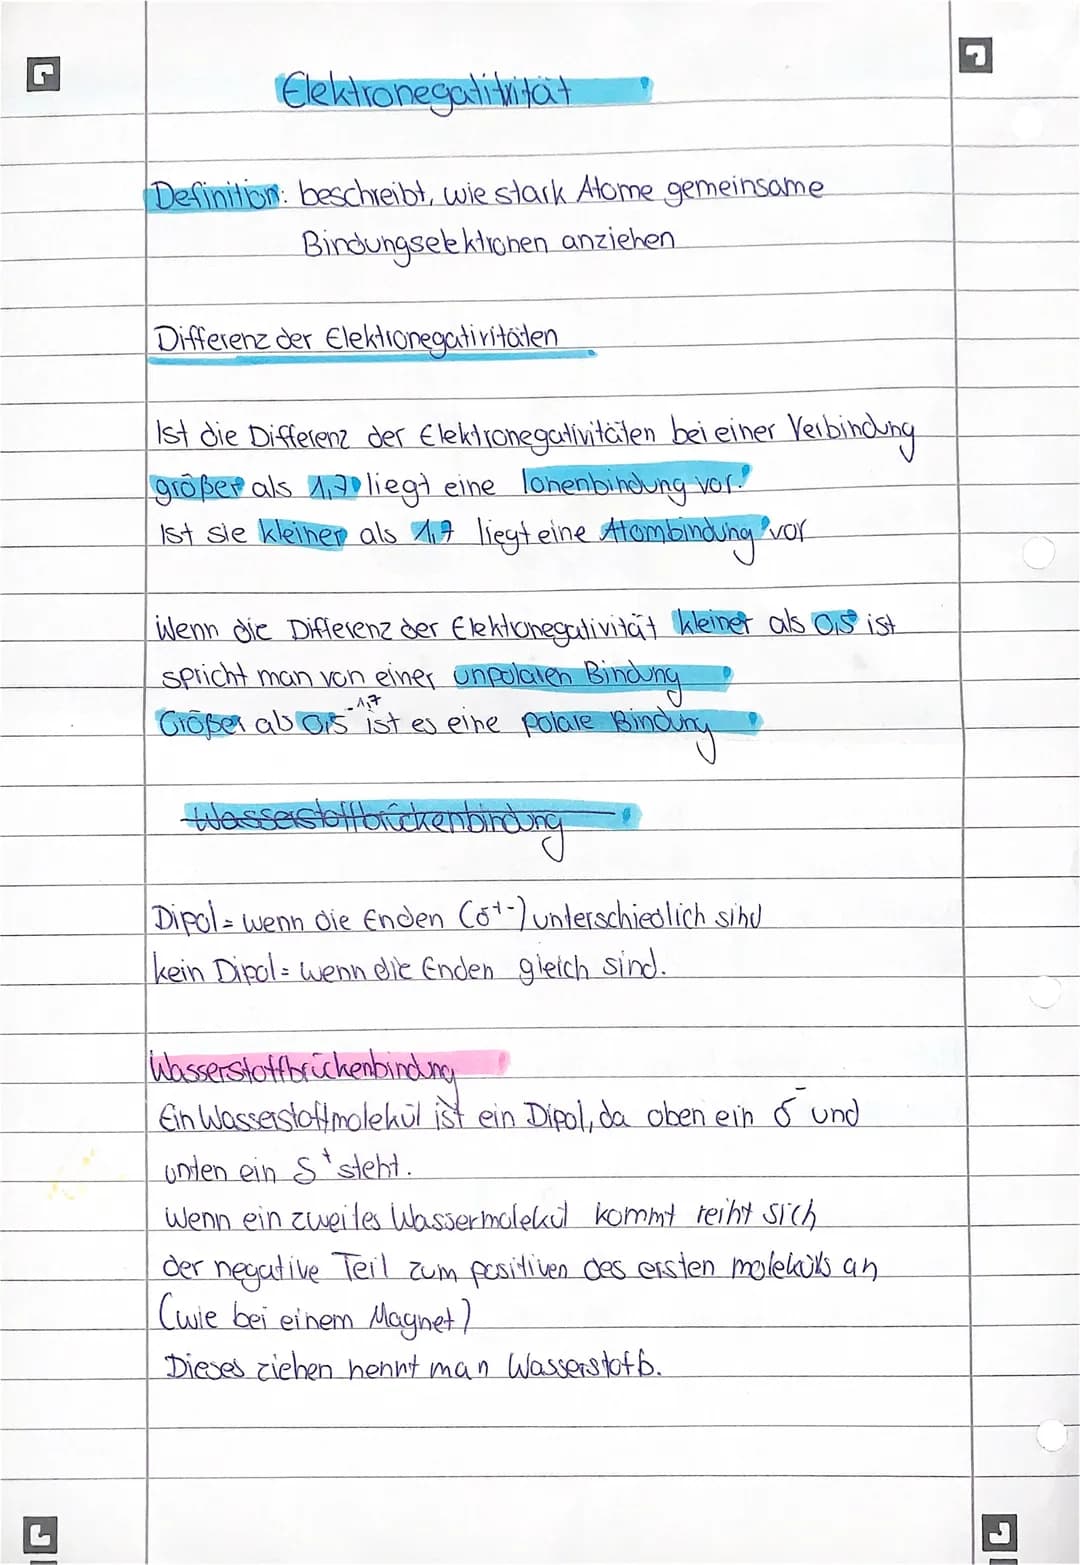 Elektronegativität
Definition: beschreibt, wie stark Atome gemeinsame
Bindungselektronen anziehen
Differenz der Elektronegativitäten
Ist die Differenz der Elektronegativitäten bei einer Verbindung
größer als 1,7 liegt eine Ionenbindung vor.
Ist sie kleiner als 1,7 liegt eine Atombindung vor
Wenn die Differenz der Elektronegativität kleiner als 0,5 ist
spricht man von einer unpolaren Bindung
Größer als 0,5 -1,7 ist es eine polare Bindung
Wasserstoffbrückenbindung
Dipol = wenn die Enden (δ+-) unterschiedlich sind
kein Dipol = wenn die Enden gleich sind.
Wasserstoffbrückenbindung
Ein Wasserstoffmolekül ist ein Dipol, da oben ein δ⁻ und
unten ein δ⁺ steht.
Wenn ein zweites Wassermolekül kommt reiht sich
der negative Teil zum positiven des ersten moleküls an
(wie bei einem Magnet)
Dieses ziehen nennt man Wasserstofb.